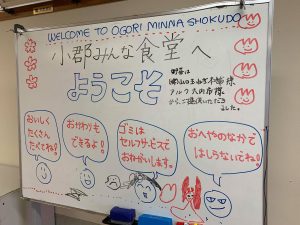 WELCOME TO OGORI MINNA SHOKUDO
小郡みんな食堂へ
ようこそ
野菜は
様
様
からご提供いただき
ました。
おいしく
たくさん
たべてね!
おかわりも
できるよ!
ゴミは
セルフサービスで
おねがいします。
おへやのなかで
はしらないでね!